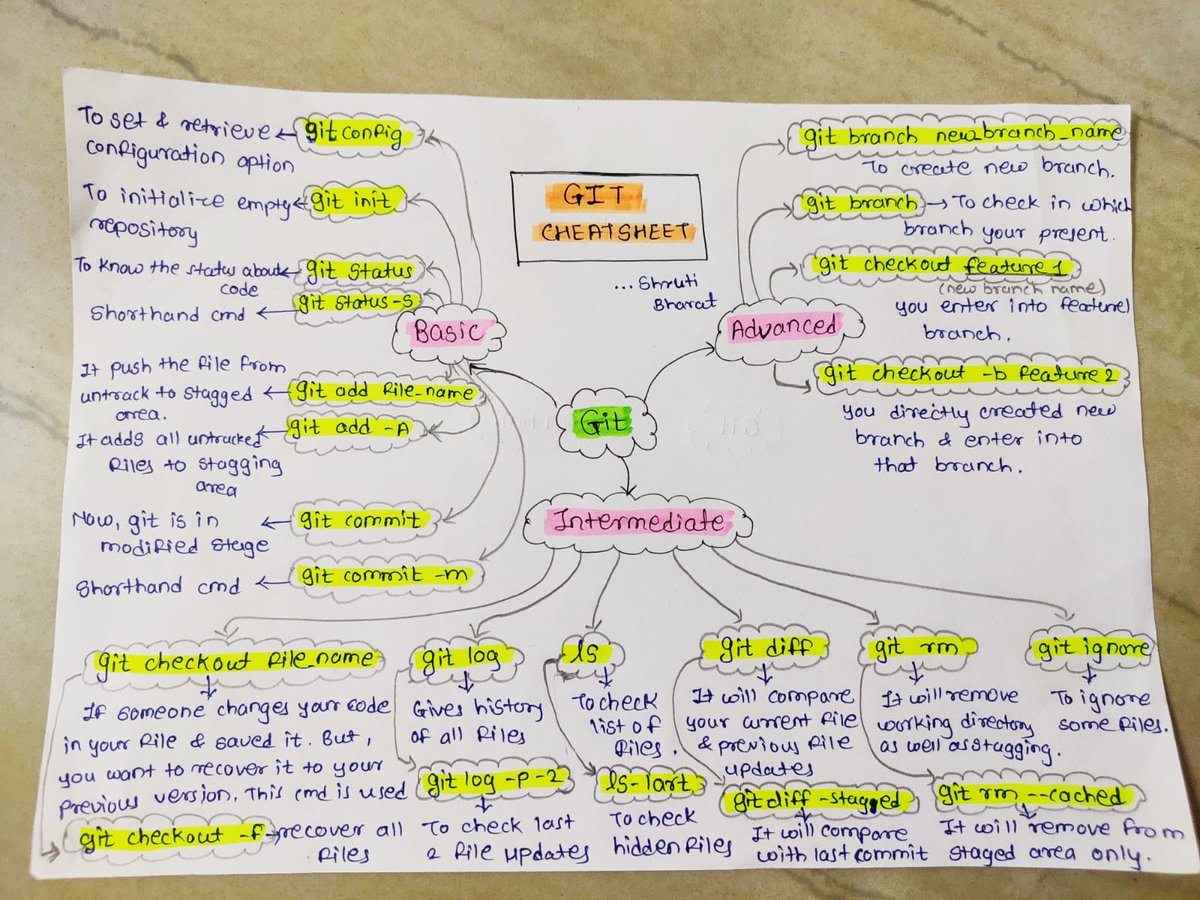 GIT
CHEATSHEET
...Shruti
Bharat
Git
Basic
git config
To set & retrieve
configuration option
git init
To initialize empty
repository
git status
To know the status about
code
git status-s
Shorthand cmd
git add file_name
It push the file from
untrack to stagged
area.
git add -A
It adds all untracked
files to stagging
area
git commit
Now, git is in
modified stage
git commit -m
Shorthand cmd
Advanced
git branch newbranch_name
To create new branch.
git branch
To check in which
branch your present.
git checkout feature1
(new branch name)
you enter into feature1
branch.
git checkout -b feature2
you directly created new
branch & enter into
that branch.
Intermediate
git checkout file_name
If someone changes your code
in your file & saved it. But,
you want to recover it to your
previous version. This cmd is used
git checkout -f
recover all
files
git log
Gives history
of all files
git log -p-2
To check last
2 file updates
ls
To check
list of
files.
ls-lart
To check
hidden files
git diff
It will compare
your current file
& previous file
updates
git diff -stagged
It will compare
with last commit
git rm
It will remove
working directory
as well as stagging.
git rm --cached
It will remove from
staged area only.
git ignore
To ignore
some files.